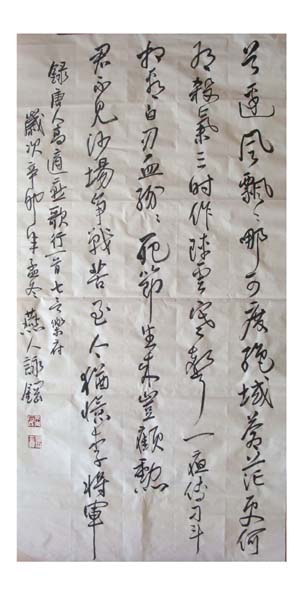 風飄〻那可度絕域蒼茫更何
有殺氣三時作陣雲寒聲一夜傳刁斗
相看白刃血紛〻死節生來豈顧勳
君不見沙場爭戰苦至今猶憶李將軍
錄唐人高適燕歌行一首七言樂府
歲次辛卯年孟冬燕人詠